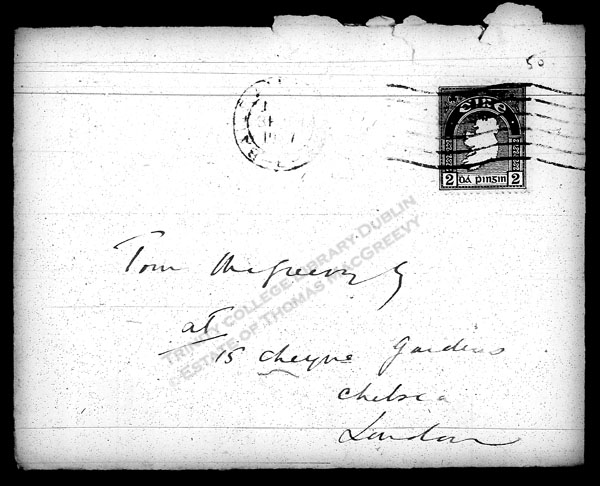 50
éIRe
2 Dá pinģin 2
Tom McGreevy
at
15 Cheyne Gardens
Chelsea
London
TRINITY COLLEGE LIBRARY DUBLIN
©ESTATE OF THOMAS MACGREEVY